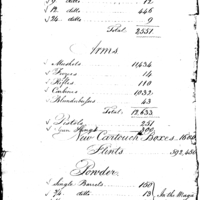 √ 9 " ditto 12
√ 12 ditto 446
√ 24 ditto 9
Total. 2551
Arms
√ Muskets 11434
√ Fuzees 14
√ Rifles 110
√ Carbines 1032
√ Blunderbusses 43
Total. 12,633
√ Pistols 251
√ 200
New Cartouch Boxes. 1600
Flints 392,450
Powder.
√ Single Barrels 150
√ 3/4 ditto 13
In the Maga